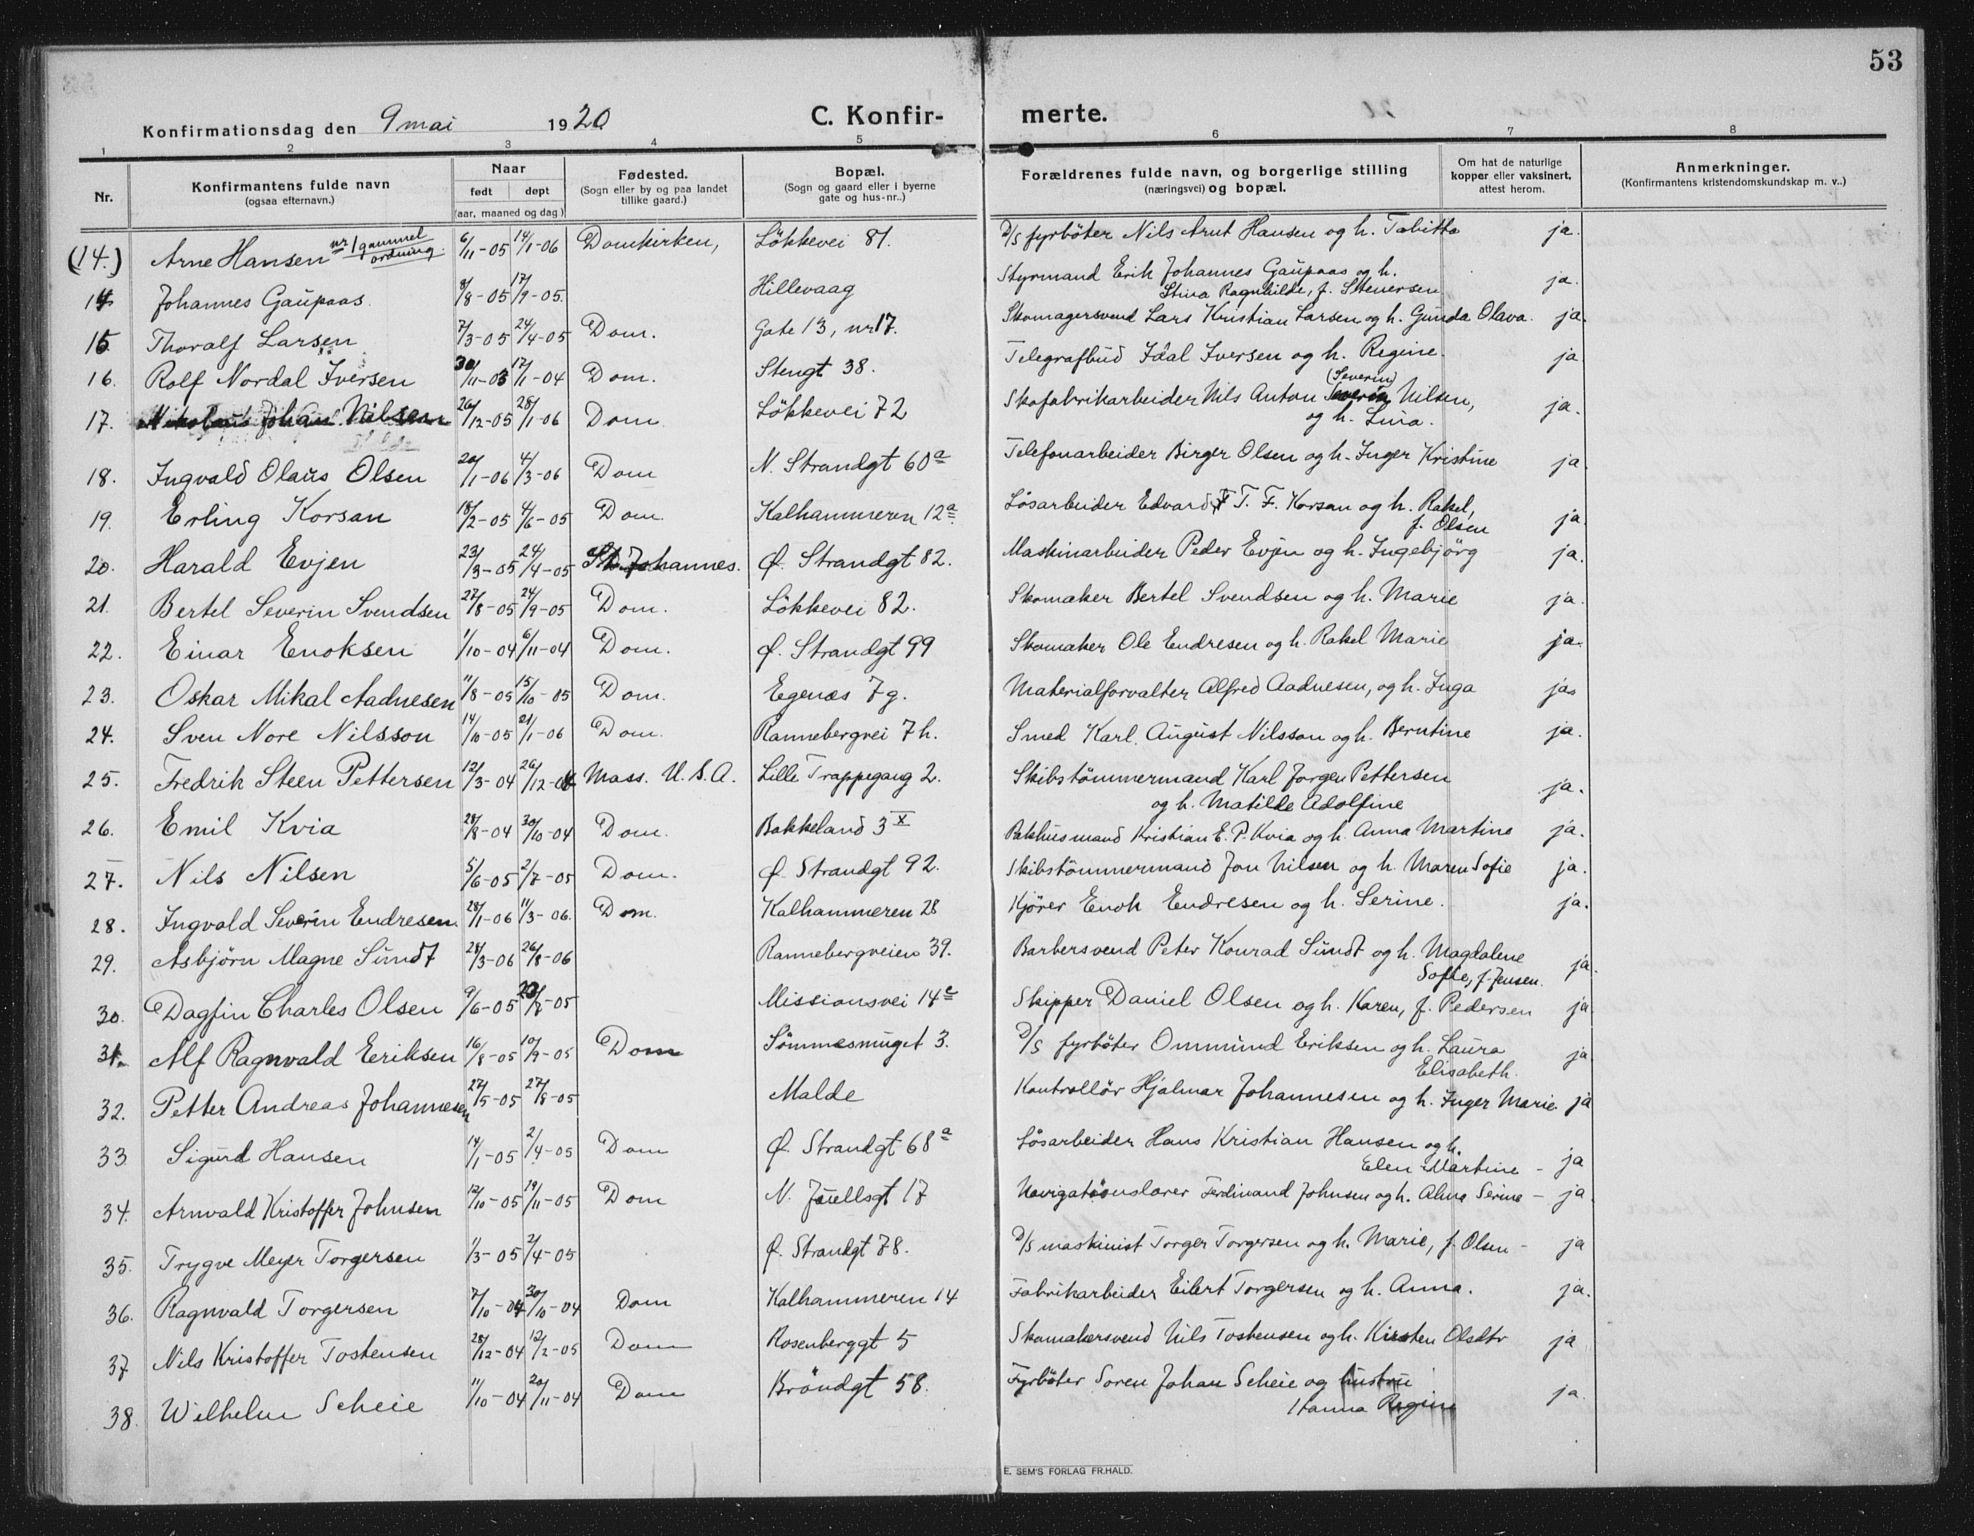 53
Konfirmationsdag den 9 mai 1920 C. Konfirmerte.
1 2 3 4 5 6 7 8
Nr. Konfirmantens fulde navn (ogsaa efternavn.) Naar født døpt (aar, maaned og dag) Fødested. (Sogn eller by og paa landet tillike gaard.) Bopæl. (Sogn og gaard eller i byerne gate og hus-nr.) Forældrenes fulde navn, og borgerlige stilling (næringsvei) og bopæl. Om hat de naturlige kopper eller vaksinert, attest herom. Anmerkninger. (Konfirmantens kristendomskundskap m. v.)
(14.) Arne Hansen nr 1 gammel ordning 6/11-05 14/1-06 Domkirken, Lökkevei 81. D/S fyrböter Nils Arnt Hansen og h. Tabitta ja.
14 Johannes Gaupaas 8/8-05 17/9-05. Hillevaag Styrmand Erik Johannes Gaupaas og h. Stina Ragnhilde, f. Stenersen ja.
15 Thoralf Larsen 7/3-05 24/4-05 Dom. Gate 13, nr 17. Skomagersvend Lars Kristian Larsen og h. Gunda Olava. ja.
16. Rolf Nordal Iversen 30/11-03 17/1-04 Dom. Stengt 38. Telegrafbud Idal Iversen og h. Regine. ja
17. Nikolaus Johan Nilsen 26/12-05 28/1-06 Dom. Lökkevei 72 Skofabrikarbeider Nils Anton (Severin) Nilsen, og h. Lina. ja.
18. Ingvald Olaus Olsen 20/1-06 4/3-06 Dom N. Strandgt 60a Telefonarbeider Birger Olsen og h. Inger Kristine ja
19. Erling Korsan 18/2-05 4/6-05 Dom. Kalhammeren 12a. Lösarbeider Edvard T. F. Korsan og h. Rakel, f. Olsen ja
20. Harald Evjen 23/3-05 24/4-05 St. Johannes. Ø. Strandgt 82. Maskinarbeider Peder Evjen og h. Ingebjörg ja.
21. Bertel Severin Svendsen 27/8-05 24/9-05 Dom. Lökkevei 82. Skomaker Bertel Svendsen og h. Marie ja.
22. Einar Enoksen 1/10-04 6/11-04 Dom. Ø. Strandgt 99 Skomaker Ole Endresen og h. Rakel Marie ja.
23. Oskar Mikal Aadnesen 11/8-05 15/10-05 Dom. Egenæs 7g. Materialforvalter Alfred Aadnesen, og h. Inga ja
24. Sven Nore Nilsson 14/10-05 21/1-06 Dom. Rannebergvei 7h. Smed Karl August Nilsson og h. Berntine ja.
25. Fredrik Steen Pettersen 12/3-04 26/12-04 Mass. U.S.A. Lille Trappegang 2. Skibstömmermand Karl Jorgen Pettersen og h. Matilde Adolfine ja.
26. Emil Kvia 28/8-04 30/10-04 Dom. Bakkeland 3 x Pakhusmand Kristian E. P. Kvia og h. Anna Martine ja.
27. Nils Nilsen 5/6-05 2/7-05 Dom. Ø. Strandgt 92. Skibstömmermand Jon Nilsen og h. Maren Sofie ja.
28. Ingvald Severin Endresen 28/1-06 11/3-06. Dom. Kalhammeren 28 Kjörer Enok Endresen og h. Serine. ja.
29. Asbjörn Magne Sundt 28/3-06 26/8-06 Rannebergveien 39. Barbersvend Peter Konrad Sundt og h. Magdalene Sofie, f. Jensen. ja.
30. Dagfin Charles Olsen 9/6-05 -05 Missionsvei 14c Skipper Daniel Olsen og h. Karen, f. Pedersen ja.
31. Alf Ragnvald Eeriksen 16/8-05 10/9-05 Dom Sömmesmuget 3. D/S fyrböter Ommund Eriksen og h. Laura Elisabeth. ja
32. Petter Andreas Johannesen 27/5-05 27/8-05 Malde Kontrollör Hjalmar Johannesen og h. Inger Marie ja
33. Sigurd Hansen 14/1-05 2/4-05 Dom Ø. Strandgt 68a Lösarbeider Hans Kristian Hansen og h. Elen Martine - ja
34. Arnvald Kristoffer Johnsen 12/10-05 19/11-05 Dom N. Juellsgt 17 Navigationslærer Ferdinand Johnsen og h. Alma Serine - ja
35. Trygve Meyer Torgersen 1/3-05 2/4-05 Ø. Strandgt 78. D/S maskinist Torger Torgersen og h. Marie, f. Olsen - ja
36. Ragnvald Torgersen 7/10-04 30/10-04 Dom Kalhammeren 14 Fabrikarbeider Eilert Torgersen og h. Anna. ja.
37 Nils Kristoffer Tostensen 28/12-04 12/2-05 Dom Rosenberggt 5 Skomakersvend Nils Tostensen og h. Kirsten Olsdtr ja
38. Wilhelm Scheie 11/10-04 20/11-04 Dom Bröndgt 58. Fyrböter Soren Johan Scheie og hustru Hanna Regine ja.
E. SEM'S FORLAG FR.HALD.